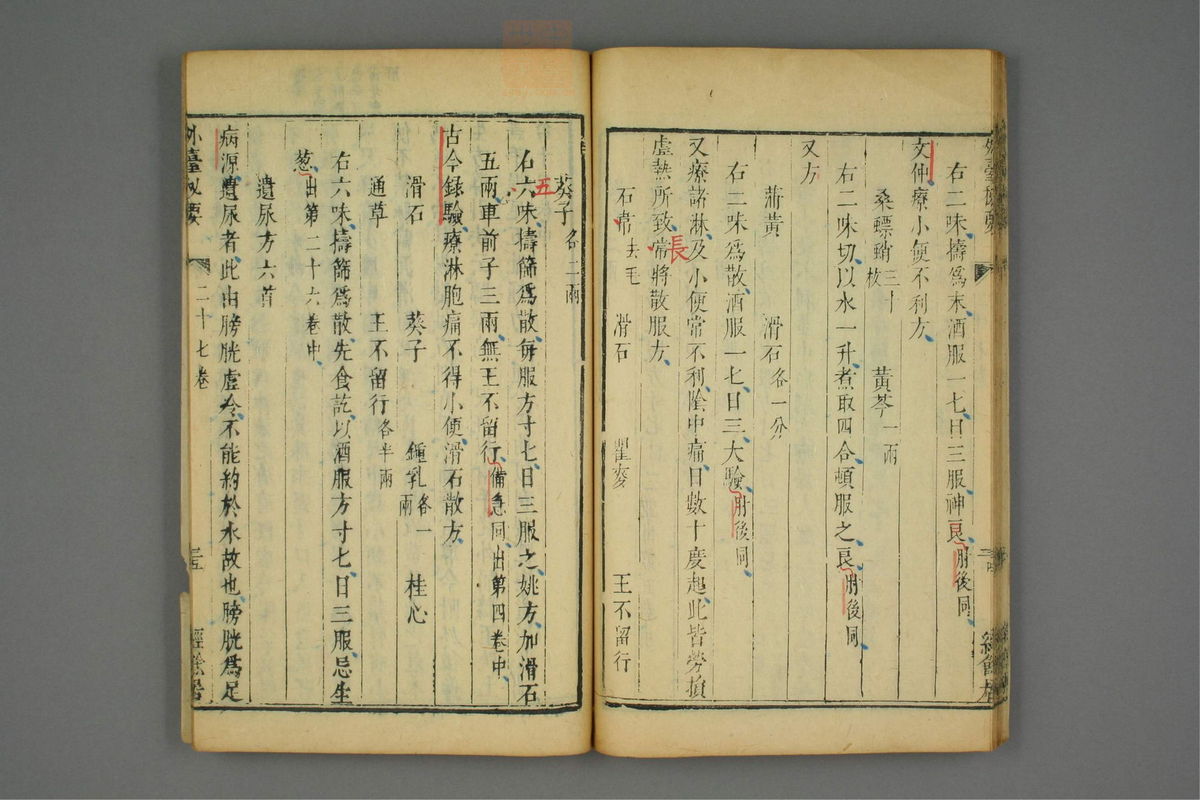 右二味擣爲末酒服一七日三服神良肘後同
文仲療小便不利方
桑螵蛸三十枚 黃芩一兩
右二味切以水一升煮取四合頓服之良肘後同
又方
蒲黃 滑石各一分
右二味爲散酒服一七日三大驗肘後同
又療諸淋及小便常不利陰中痛日數十度起此皆勞損
虛熱所致常將散服方
長
石常去毛 滑石 瞿麥 王不留行
葵子各二兩
五
右六味擣篩爲散每服方寸七日三服之姚方加滑石
五兩車前子三兩無王不留行備急同出第四卷中
古今録驗療淋胞痛不得小便滑石散方
滑石 葵子 鍾乳各一兩 桂心
通草 王不留行各半兩
右六味擣篩爲散先食訖以酒服方寸七日三服忌生
葱出第二十六卷中
遺尿方六首
病源遺尿者此由膀胱虛冷不能約於水故也膀胱爲足
外臺秘要 二十七卷 三五 經餘居